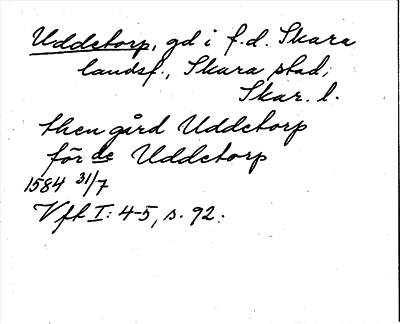 Uddetorp, gd i f.d. Skara
landsf., Skara stad;
Skar. l.
then gård Uddetorp
för de Uddetorp
1584 31/7
Vfl I: 4-5, s. 92.